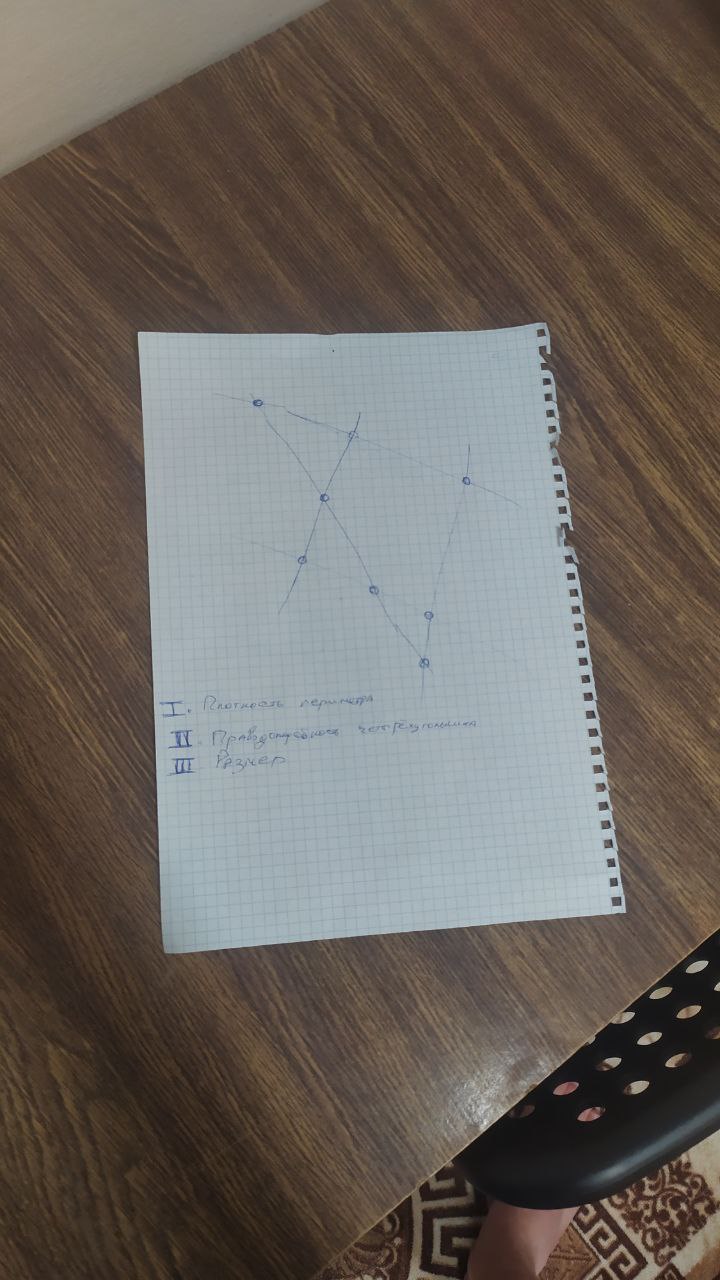 I. Плотность периметра
II. Правдоподобность четырёхугольника
III Размер